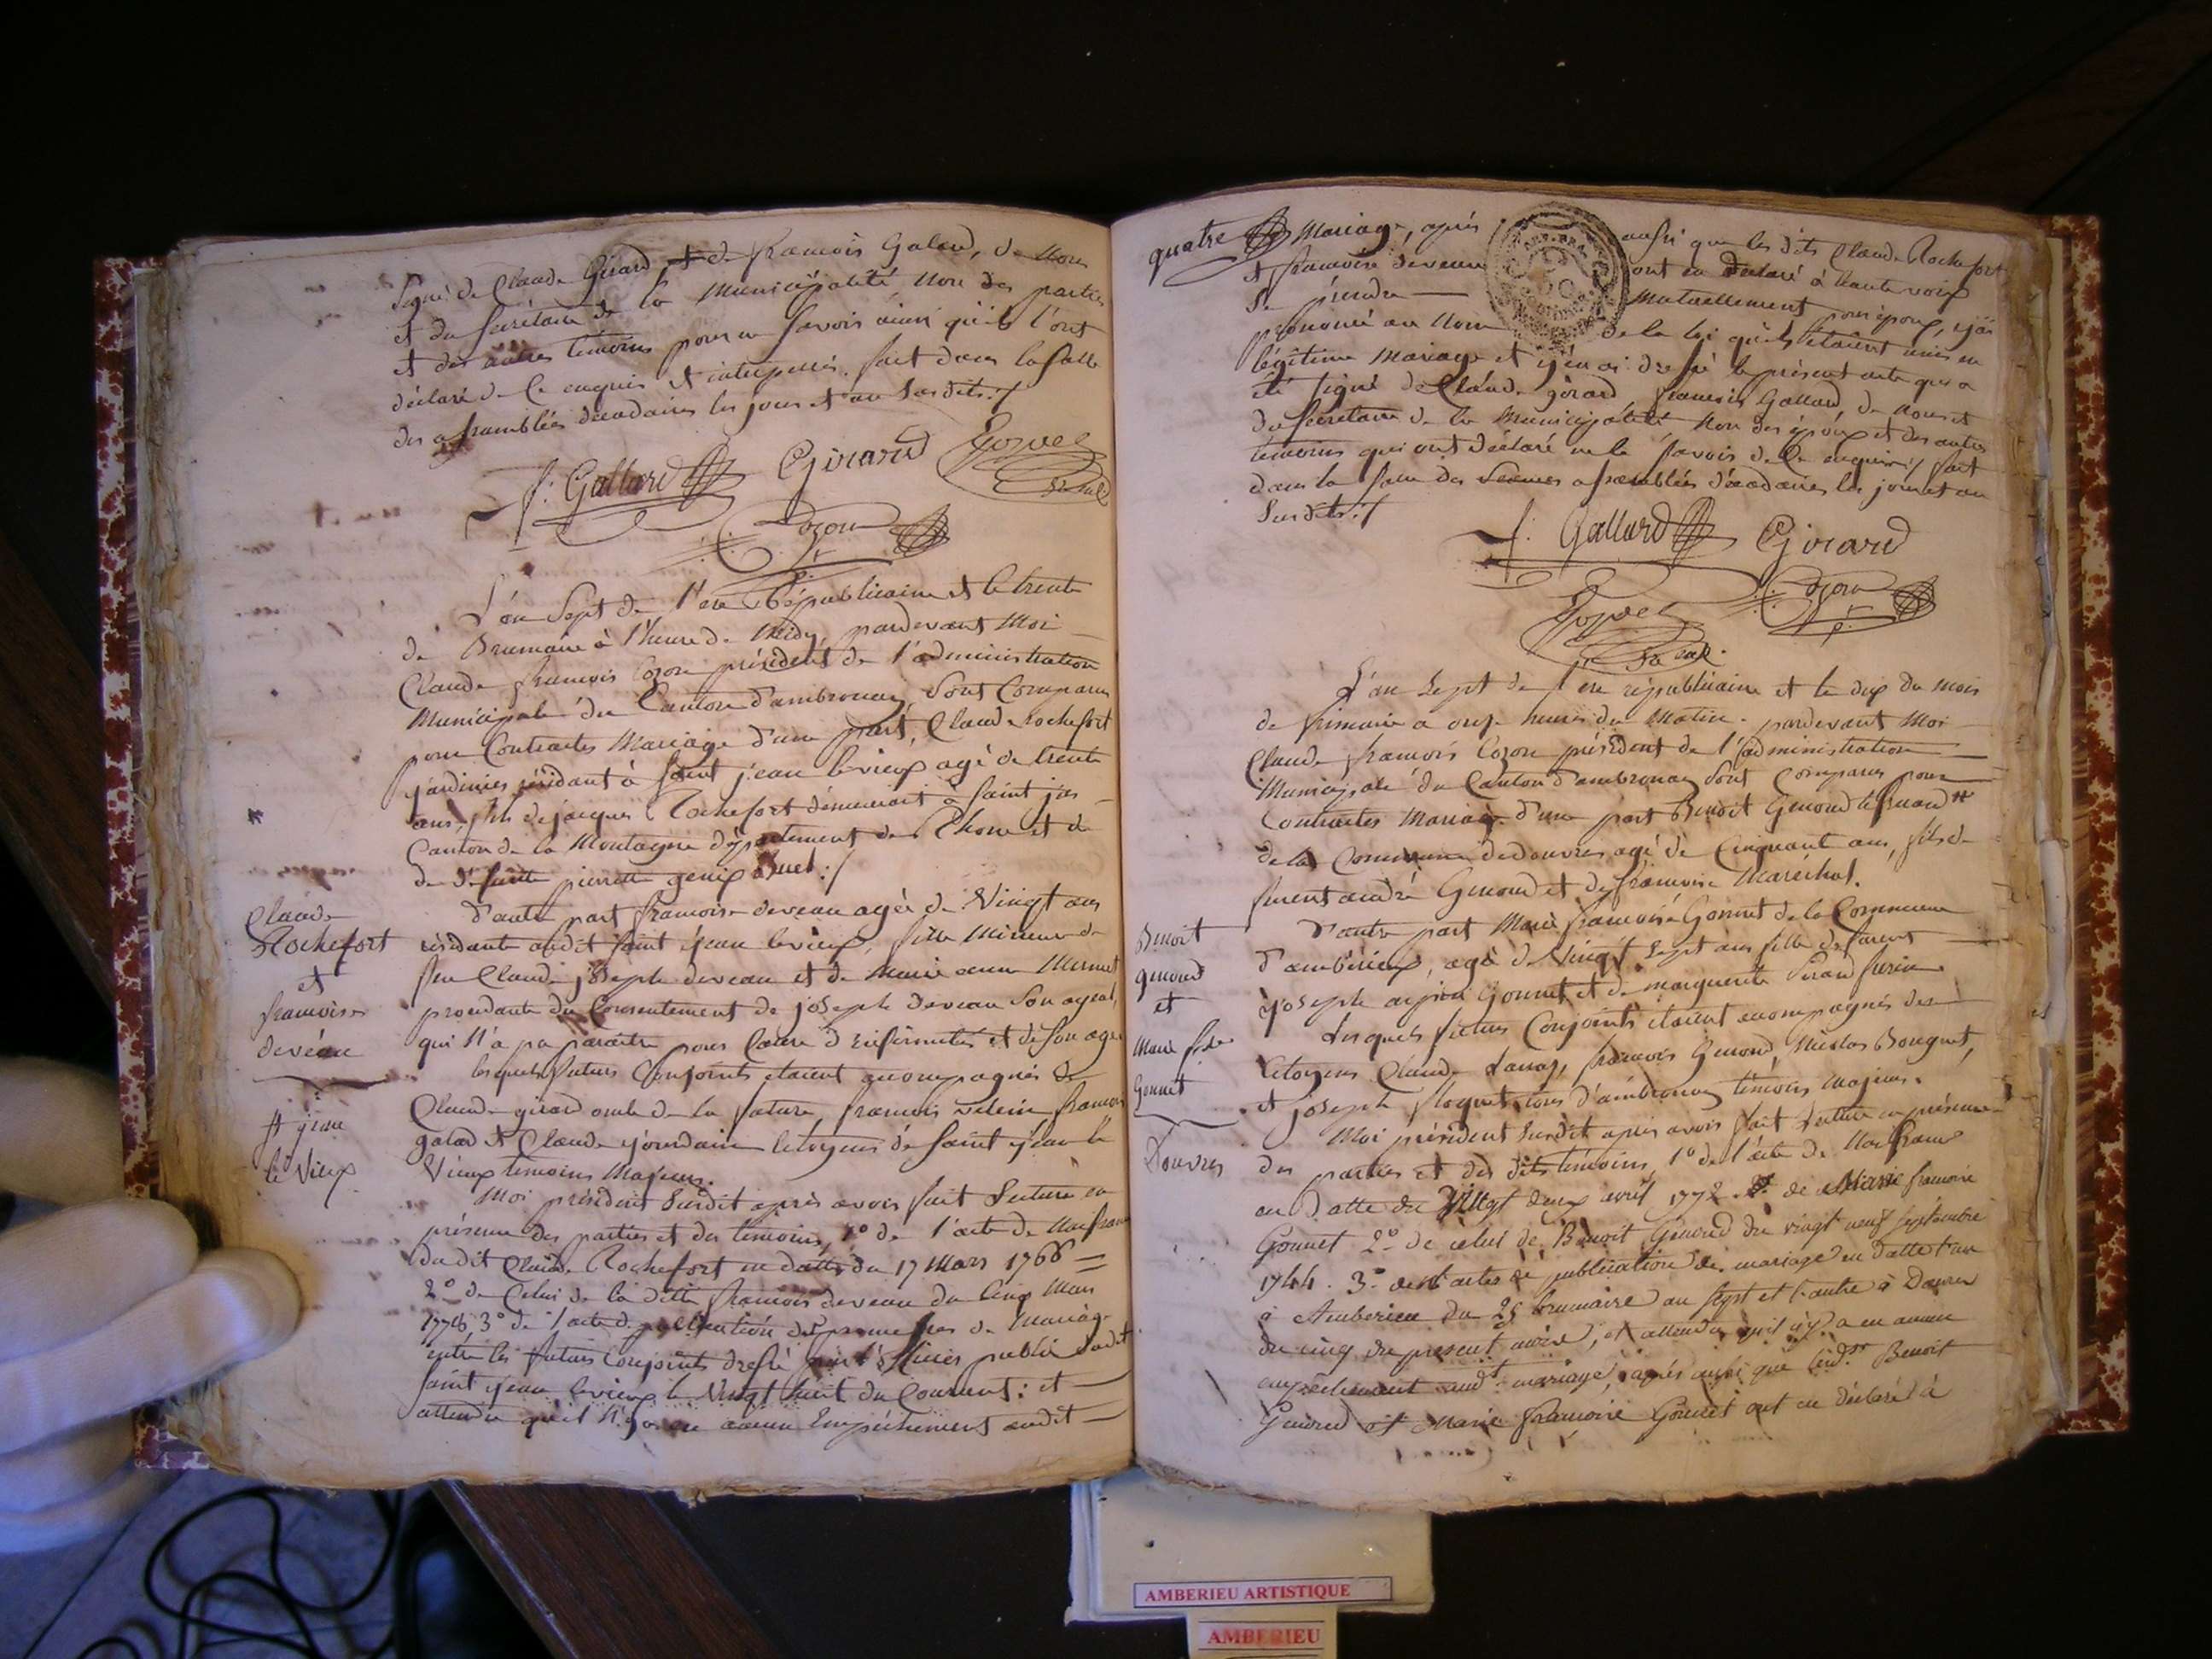 Signé de Claude Girard, et de francois Galard, de Nous
et du secrétaire de la Municipalité, Non des parties
et des autres temoins pour ne savoir ainsi qu'ils l'ont
déclaré de ce enquis et interpellés. fait dans la salle
des assemblées décadaires les jour et an susdits ./
f: Gallard Girard
Cozon
L'an Sept de l'ere Républicaine et le trente
de Brumaire à l'heure de Midy, pardevant Moi
Claude francois Cozon président de l'administration
Municipale du Canton d'ambronay, sont Comparus
pour Contracter Mariage d'une part, Claude Rochefort
jardinier résidant à saint jean le vieux agé de trente
ans, fils de jacques Rochefort demeurant à saint
Canton de la Montagne département du Rhone et de
de défunte pierrette
d'autre part francoise deveau agée de Vingt ans
résidante audit saint jean le vieux, fille Mineure de
feu Claude joseph deveau et de Marie anne Mermet
procedante du Consentement de joseph deveau son ayeul,
qui N'a pu paroitre pour Cause d'infirmités et de son age
Claude
Rochefort
et
francoise
deveau
lesquels futurs Conjoints étaient accompagnés de
Claude girard oncle de la future, francois velein francois
galard et Claude jourdain Citoyens de saint jean le
Vieux temoins Majeurs.
# jean
le Vieux
Moi président susdit après avoir fait Lecture en
présence des parties et des temoins, 1° de l'acte de Naissance
du dit Claude Rochefort en datte du 17 Mars 1766 =
2° de Celui de la ditte francoise deveau du Cinq Mars
1778 3° de l'acte de publication des promesses de Mariage
entre les futurs Conjoints dressé par l'officier public dudit
saint jean le vieux le Vingt huit du Courant: et
attendu qu'il N'y a eu aucun Empêchement audit
quatre Mariage, après aussi que les dits Claude Rochefort
et francoise deveau ont eu déclaré à haute voix
se prendre Mutuellement pour époux, j'ai
prononcé au Nom de la loi qu'ils étaient unis en
légitime Mariage et j'en ai dressé le présent acte qui a
été signé de Claude gérard francois Gallard de Nous et
du Secretaire de la Municipalité Non des époux et des autres
temoins qui ont déclaré ne le savoir de ce enquis ./ fait
dans la salle des Séances assemblées décadaires les jour et an
susdits ./
f: Gallard Girard
Cozon
L'an Sept de l'ere républicaine et le dix du mois
de frimaire a onze heures du Matin. pardevant Moi
Claude francois Cozon président de l'administration
Municipale du Canton d'ambronay sont Comparus pour
Contracter Mariage d'une part Benoit Genoud
de la Commune de douvres agé de Cinquante ans, fils de
andré Genoud et de francoise Maréchal.
d'autre part Marie francoise Gonnet de la Commune
d'ambérieux, agée de Vingt Sept ans fille de
joseph Gonnet et de marguerite
Benoit
genoud
et
Marie fse
Gonnet
Douvres
Lesquels futurs Conjoints étaient accompagnés des
Citoyens Claude francois Genoud, Nicolas Bouquet,
et joseph tous d'ambronay témoins majeurs.
Moi président susdit après avoir fait Lecture en présence
des parties et des dits témoins, 1° de l'acte de Naissance
en Datte du Vingt deux avril 1772 de Marie francoise
Gonnet 2° de celui de Benoit Genoud du vingt neuf septembre
1744. 3° des actes de publication de mariage en datte l'un
à Amberieu du 25 brumaire an sept et l'autre à Douvres
du cinq du present mois, et attendu qu'il n'y a eu aucun
empêchement audt mariage, après aussi que lesd. Benoit
Genoud et Marie francoise Gonnet ont eu déclaré à
AMBERIEU ARTISTIQUE
AMBERIEU